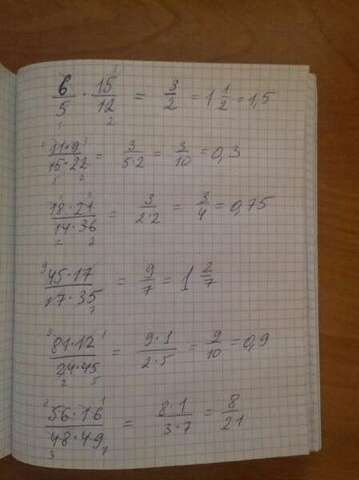 6/5 · 15/12 = 3/2 = 1 1/2 = 1,5
11·9/15·22 = 3/5·2 = 3/10 = 0,3
18·21/14·36 = 3/2·2 = 3/4 = 0,75
45·17/17·35 = 9/7 = 1 2/7
81·12/24·45 = 9·1/2·5 = 9/10 = 0,9
56·16/48·49 = 8·1/3·7 = 8/21